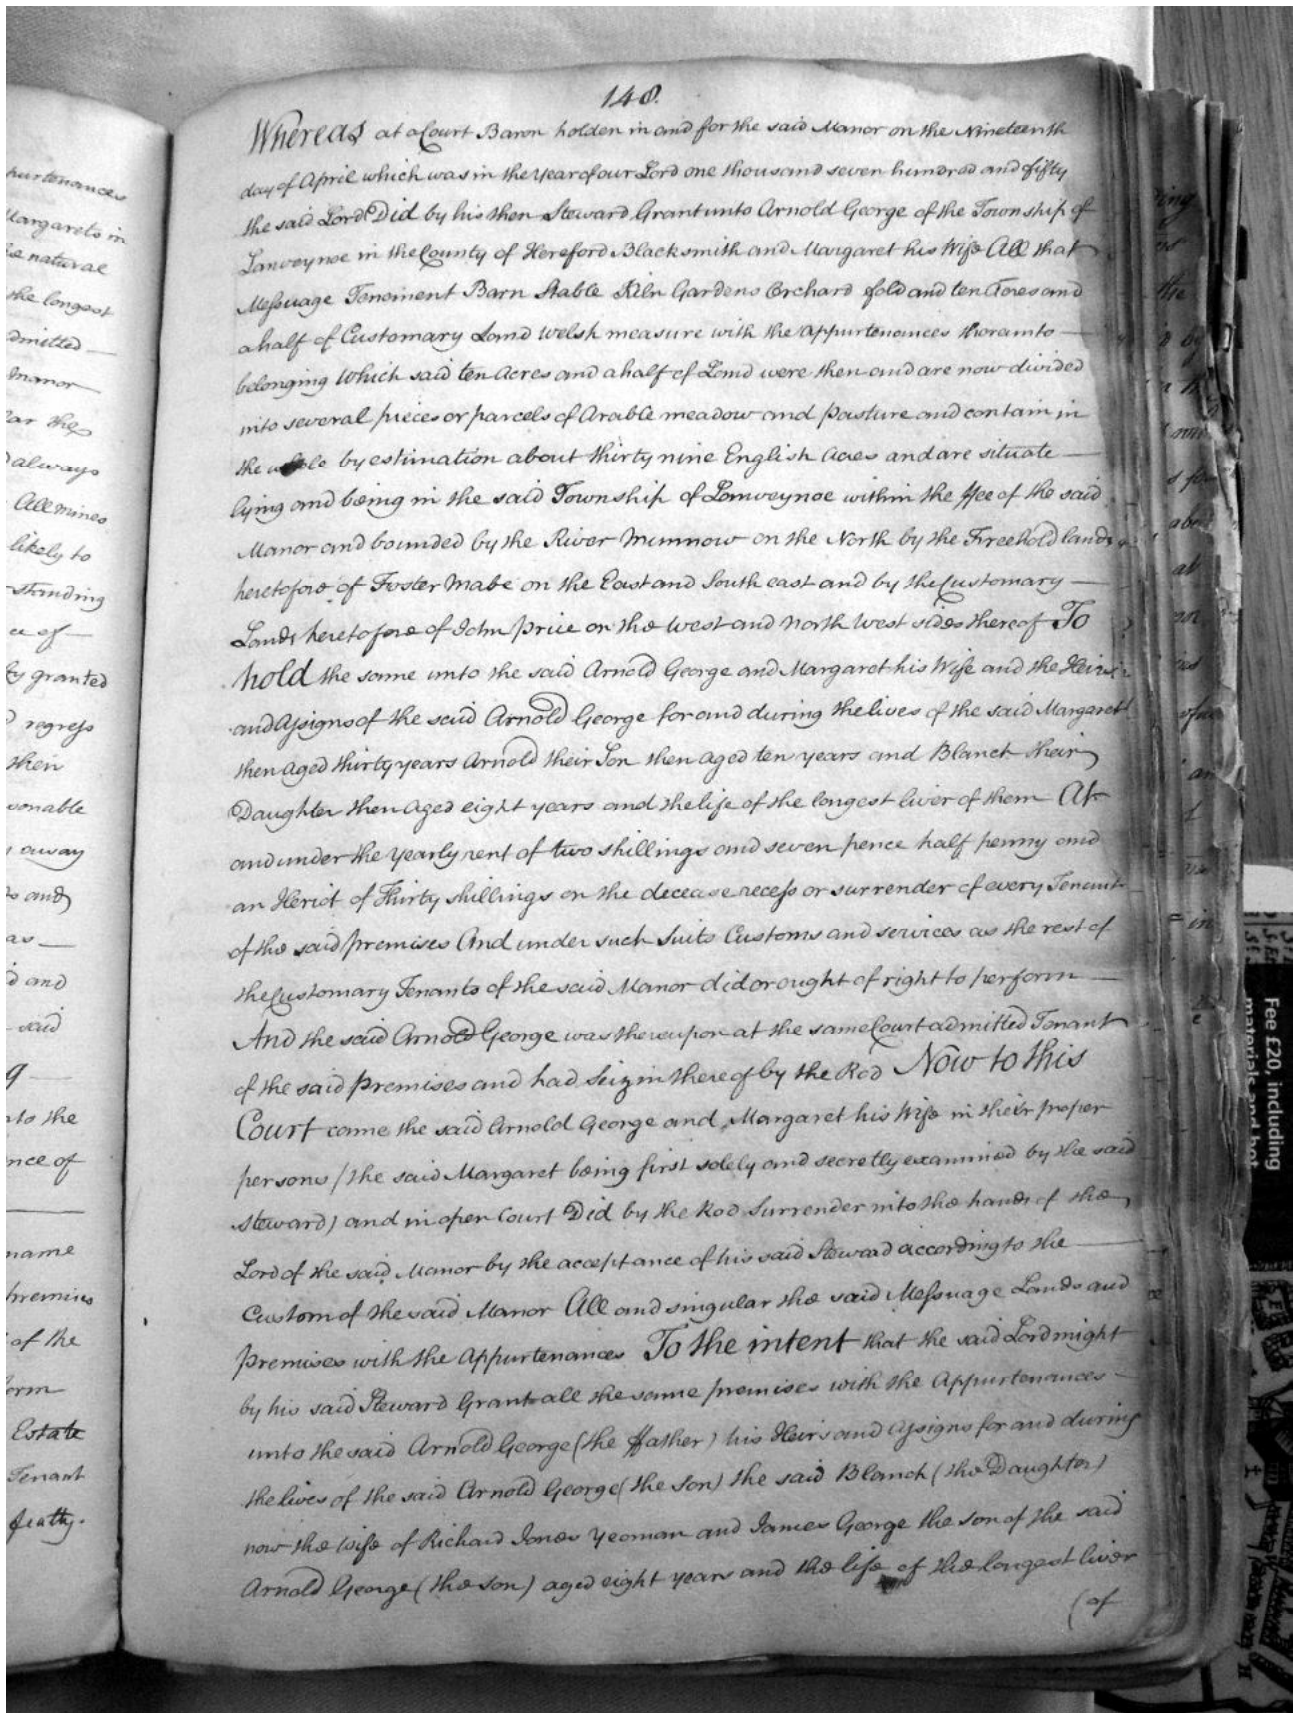 purtenances
Margarets in
he natural
the longest
dmitted
manor
lar the
always
All mines
likely to
standing
ce of
granted
regress
then
sonable
away
and
as
and
said
g
nto the
nce of
name
premises
of the
form
Estate
Tenant
fealty.
148.
Whereas at a Court Baron holden in and for the said Manor on the Nineteenth
day of April which was in the Year of our Lord one thousand seven hundred and fifty
the said Lord Did by his then Steward Grant unto Arnold George of the Township of
Lanveynoe in the County of Hereford Blacksmith and Margaret his Wife All that
Messuage Tenement Barn Stable Kiln Gardens Orchard fold and ten Acres and
a half of Customary Land Welsh measure with the Appurtenances thereunto
belonging Which said ten Acres and a half of Land were then and are now divided
into several pieces or parcels of Arable meadow and Pasture and contain in
the whole by estimation about thirty nine English Acres and are situate
lying and being in the said Township of Lanveynoe within the ffee of the said
Manor and bounded by the River Munnow on the North by the Freehold lands
heretofore of Foster Mabe on the East and South east and by the Customary
Lands heretofore of John Price on the West and North West sides thereof To
hold the same unto the said Arnold George and Margaret his Wife and the Heirs
and Assigns of the said Arnold George for and during the lives of the said Margaret
then Aged thirty years Arnold their Son then aged ten years and Blanch their
Daughter then Aged eight years and the life of the longest liver of them At
and under the Yearly rent of two shillings and seven pence half penny and
an Heriot of Thirty shillings on the decease recess or surrender of every Tenant
of the said premises And under such Suits Customs and services as the rest of
the Customary Tenants of the said Manor did or ought of right to perform
And the said Arnold George was thereupon at the same Court admitted Tenant
of the said Premises and had Seizin thereof by the Rod Now to this
Court came the said Arnold George and Margaret his Wife in their proper
persons (the said Margaret being first solely and secretly examined by the said
Steward) and in open Court Did by the Rod Surrender into the hands of the
Lord of the said Manor by the acceptance of his said Steward according to the
Custom of the said Manor All and singular the said Messuage Lands and
Premises with the Appurtenances To the intent that the said Lord might
by his said Steward Grant all the same premises with the Appurtenances
unto the said Arnold George (the ffather) his Heirs and Assigns for and during
the lives of the said Arnold George (the son) the said Blanch (the Daughter)
now the wife of Richard Jones Yeoman and James George the son of the said
Arnold George (the son) aged eight years and the life of the longest liver
(of
Fee £20, including
materials and hot